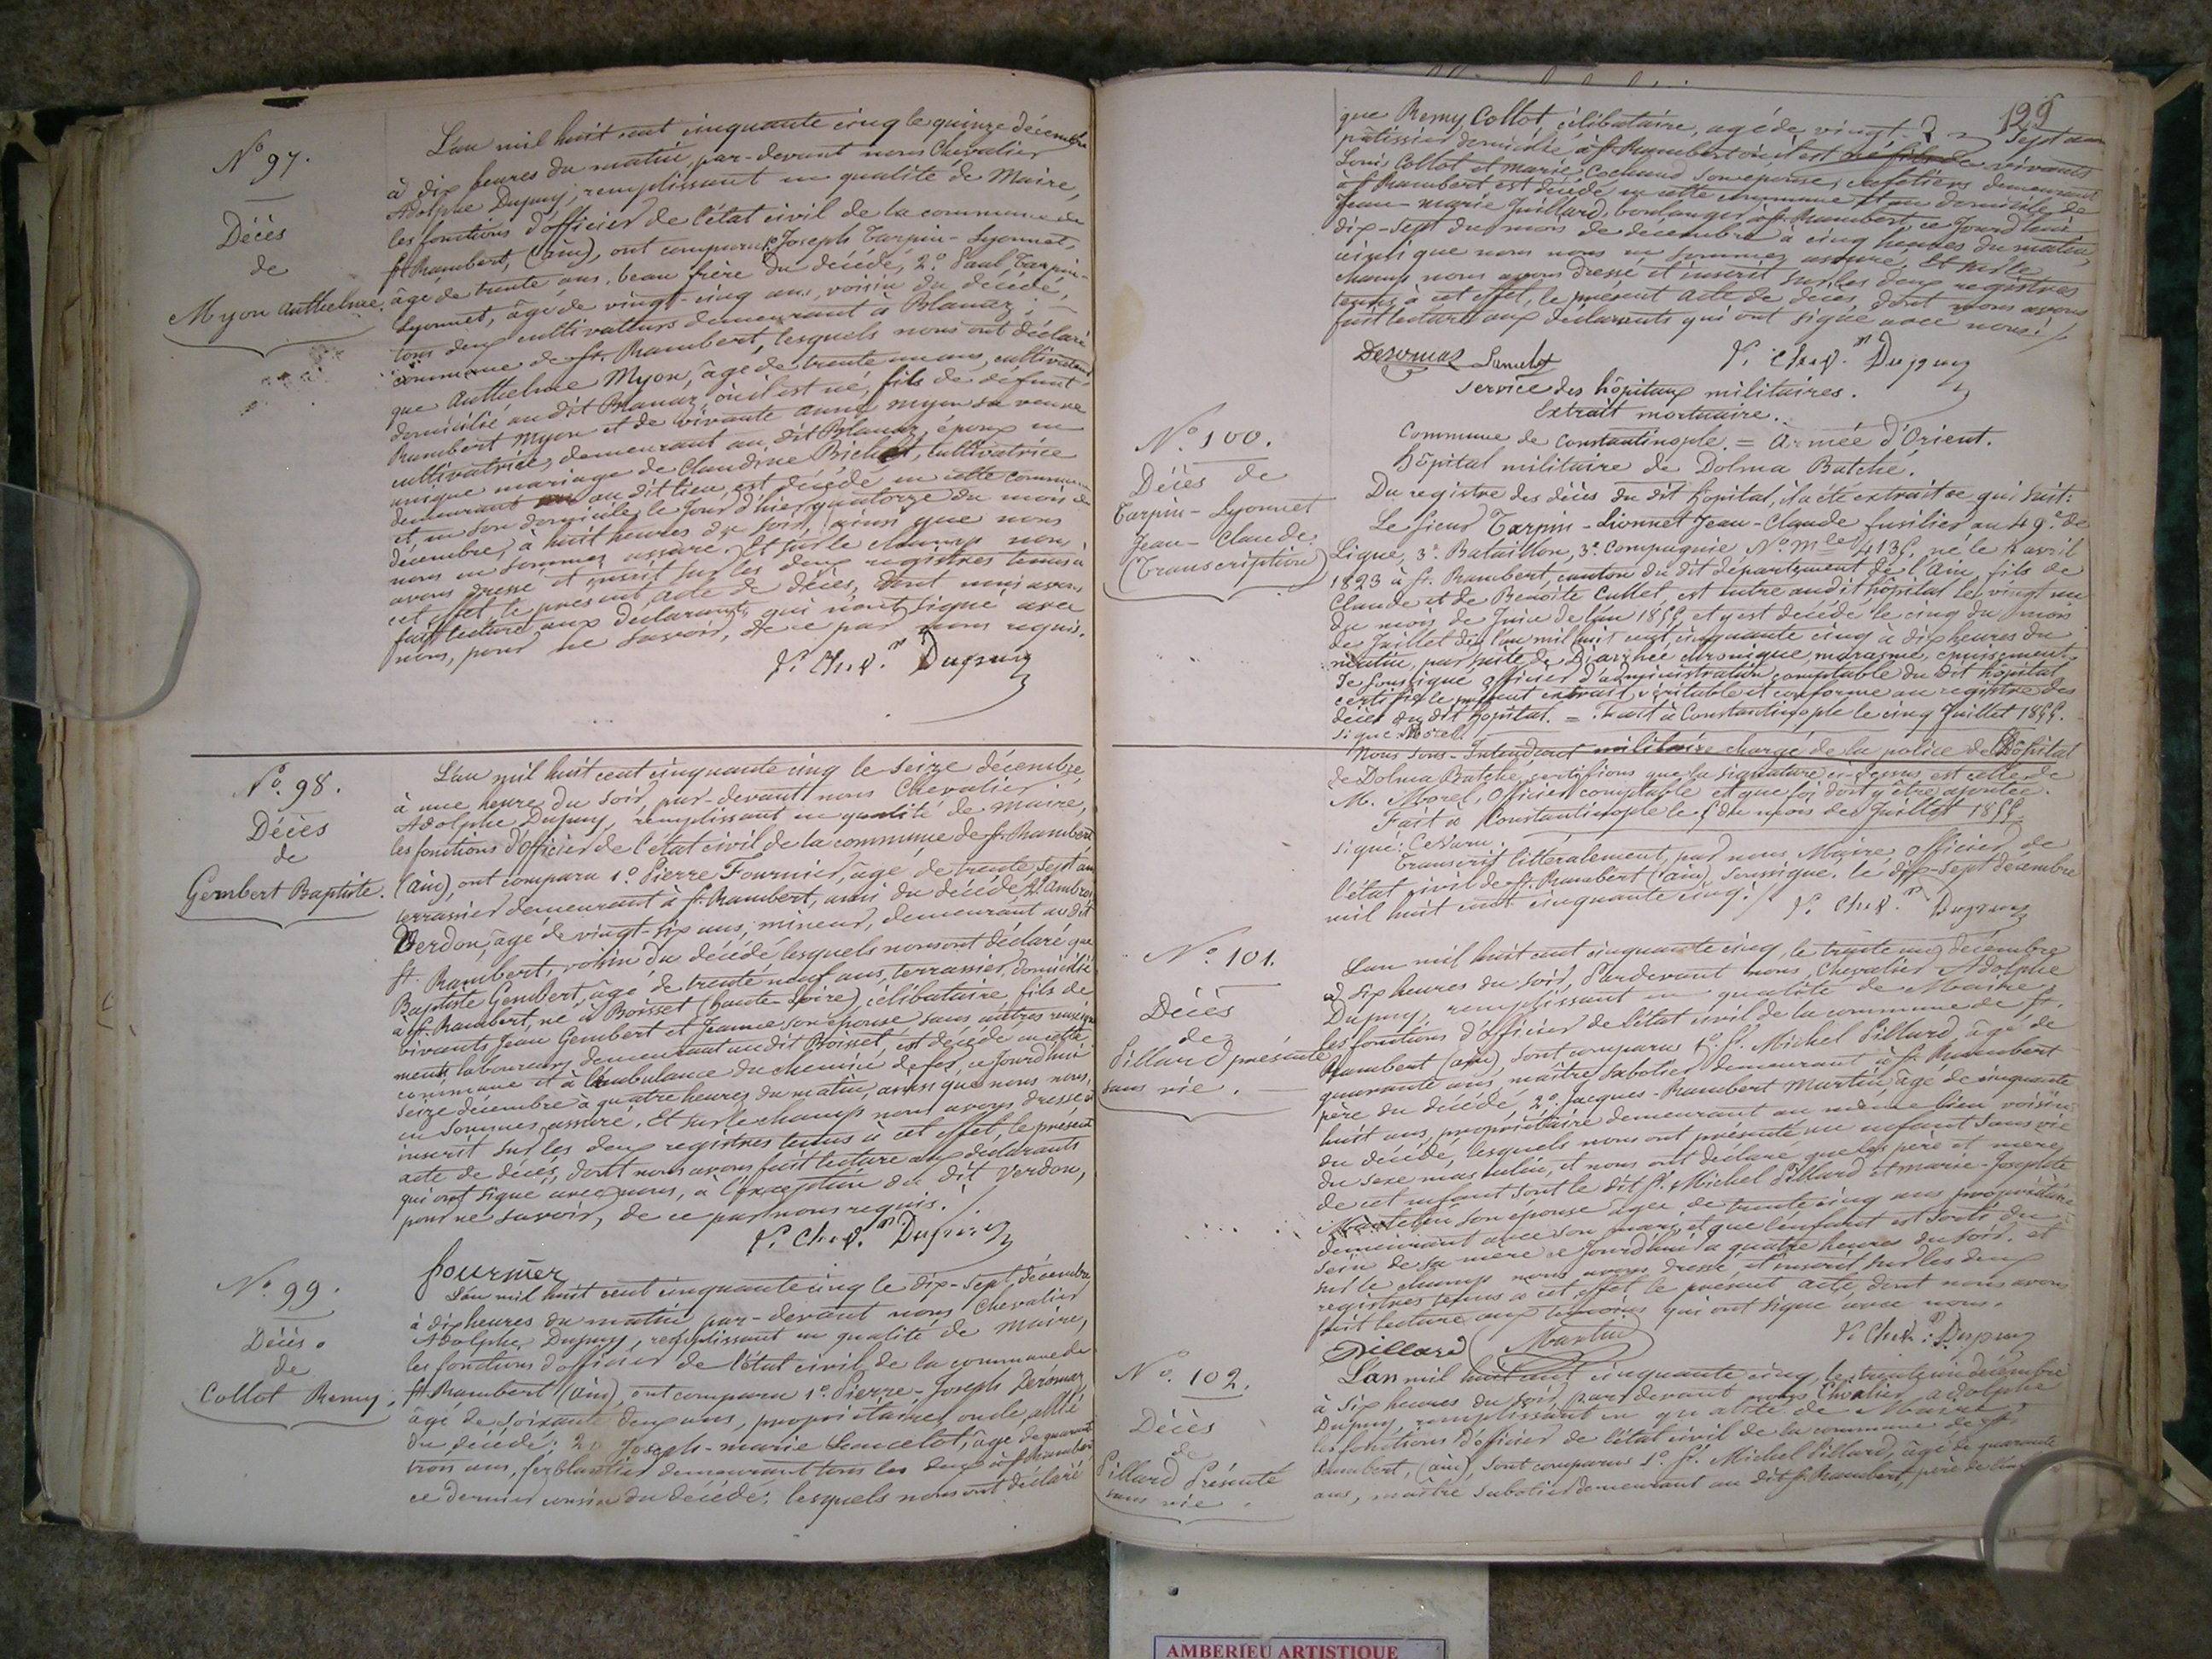 N° 97.
Décès
de
Myon Anthelme.
L'an mil huit cent cinquante cinq le quinze décembre
à dix heures du matin, par-devant nous Chevalier
Adolphe Dupuy, remplissant en qualité de Maire,
les fonctions d'officier de l'état civil de la commune de
St. Rambert, (ain), ont comparu 1° Joseph Tarpin-Lyonnet,
âgé de trente ans, beau frère du décédé, 2° Paul Tarpin-
Lyonnet, âgé de vingt-cinq ans, voisin du décédé,
tous deux cultivateurs demeurant à Blanaz,
commune de St. Rambert, lesquels nous ont déclaré
que Anthelme Myon, âgé de trente un ans, cultivateur
domicilié au dit Blanaz, où il est né, fils de défunt
Rambert Myon et de vivante Anne Myon sa veuve
cultivatrice, demeurant au dit Blanaz, époux en
unique mariage de Claudine Bichat, cultivatrice
demeurant au dit lieu, est décédé en cette commune
et en son domicile le jour d'hier quatorze du mois de
décembre, à huit heures du soir, ainsi que nous
nous en sommes assuré. Et sur le champ nous
avons dressé et inscrit sur les deux registres tenus à
cet effet, le présent acte de décès, dont nous avons
fait lecture aux déclarants qui n'ont signé avec
nous, pour ne savoir, de ce par nous requis.
V. Chev. Dupuy
N° 98.
Décès
de
Gembert Baptiste.
L'an mil huit cent cinquante cinq le seize décembre,
à une heure du soir, par-devant nous Chevalier
Adolphe Dupuy, remplissant en qualité de maire,
les fonctions d'officier de l'état civil de la commune de St. Rambert
(ain), ont comparu 1° Pierre Fournier, âgé de trente sept ans
terrassier demeurant à St. Rambert, ami du décédé, 2° Ambroise
Verdon, âgé de vingt-six ans, mineur, demeurant au dit
St. Rambert, voisin du décédé, lesquels nous ont déclaré que
Baptiste Gembert, âgé de trente neuf ans, terrassier, domicilié
à St. Rambert, né à Boisset (haute-Loire), célibataire, fils de
vivants Jean Gembert et Jeanne son épouse sans autres renseigne
ments laboureurs demeurant au dit Boisset, est décédé en cette
commune et à l'ambulance du chemin de fer, ce jourd'hui
seize décembre à quatre heures du matin, ainsi que nous nous
en sommes assuré. Et sur le champ nous avons dressé et
inscrit sur les deux registres tenus à cet effet, le présent
acte de décès, dont nous avons fait lecture aux déclarants
qui ont signé avec nous, à l'exception du dit Verdon,
pour ne savoir, de ce par nous requis.
V. Chev. Dupuy
fournier
N° 99.
Décès
de
Collot Remy.
L'an mil huit cent cinquante cinq le dix-sept décembre
à dix heures du matin par-devant nous Chevalier
Adolphe Dupuy, remplissant en qualité de maire,
les fonctions d'officier de l'état civil de la commune de
St. Rambert (ain), ont comparu 1° Pierre-Joseph Deromas,
âgé de soixante deux ans, propriétaire, oncle allié
du décédé; 2° Joseph-marie Lancelot, âgé de quarante
trois ans, ferblantier demeurant tous les deux à St. Rambert
ce dernier cousin du décédé; lesquels nous ont déclaré
129
que Remy Collot célibataire, agé de vingt-sept ans
pâtissier domicilié à St. Rambert où il est né fils de vivants
Louis Collot et Marie Cochand son épouse, cafetiers demeurant
à St. Rambert est décédé en cette commune et au domicile de
Jean-marie Juillard, boulanger à St. Rambert, ce jourd'hui
dix-sept du mois de décembre à cinq heures du matin,
ainsi que nous nous en sommes assuré. Et sur le
champ nous avons dressé et inscrit sur les deux registres
tenus à cet effet, le présent acte de décès, dont nous avons
fait lecture aux déclarants qui ont signé avec nous.
Deromas Lancelot V. Chev. Dupuy
Service des hôpitaux militaires.
Extrait mortuaire.
N° 100.
Décès de
Tarpin-Lyonnet
Jean-Claude.
(Transcription)
Commune de Constantinople = Armée d'Orient.
hôpital militaire de Dolma Batché.
Du registre des décès du dit hôpital, il a été extrait ce qui suit:
Le sieur Tarpin-Lionnet Jean-Claude fusilier au 49e de
Ligne, 3e Bataillon, 3e Compagnie N° mle 4135, né le 4 avril
1823 à St. Rambert, canton du dit département de l'Ain, fils de
Claude et de Benoite Cullet est entré au dit hôpital le vingt un
du mois de Juin de l'an 1855, et y est décédé le cinq du mois
de Juillet de l'an mil huit cent cinquante cinq à dix heures du
matin, par suite de Diarrhée chronique, marasme, épuisement.
Je soussigné officier d'administration comptable du dit hôpital
certifie le présent extrait véritable et conforme au registre des
décès du dit hôpital. = Fait à Constantinople le cinq Juillet 1855.
signé: Morel.
Nous sous-Intendant militaire chargé de la police de l'hôpital
de Dolma Batché, certifions que la signature ci-dessus est celle de
M. Morel, officier comptable et que foi doit y être ajoutée.
Fait à Constantinople le 5 du mois de Juillet 1855
signé:
Transcrit littéralement par nous Maire, officier de
l'état civil de St. Rambert (ain), soussigné, le dix-sept décembre
mil huit cent cinquante cinq. V. Chev. Dupuy
N° 101.
Décès
de
Pillard présenté
sans vie.
L'an mil huit cent cinquante cinq, le trente un décembre
à six heures du soir, Pardevant nous, Chevalier Adolphe
Dupuy, remplissant en qualité de Maire,
les fonctions d'officier de l'état civil de la commune de St.
Rambert (ain), sont comparus 1° St. Michel Pillard, âgé de
quarante ans, maître sabotier demeurant à St. Rambert
père du décédé, 2° Jacques-Rambert Martin, âgé de cinquante
huit ans, propriétaire demeurant au même lieu voisin
du décédé, lesquels nous ont présenté un enfant sans vie
du sexe masculin, et nous ont déclaré que les père et mère
de cet enfant sont le dit St. Michel Pillard et marie-Josephte
son épouse âgée de trente cinq ans propriétaire
demeurant avec son mari, et que l'enfant est sorti du
sein de sa mère ce jourd'hui à quatre heures du soir. et
sur le champ nous avons dressé et inscrit sur les deux
registres tenus à cet effet le présent acte, dont nous avons
fait lecture aux témoins qui ont signé avec nous.
Pillard Martin V. Chev. Dupuy
N° 102.
Décès
de
Pillard Présenté
sans vie.
L'an mil huit cent cinquante cinq, le trente un décembre
à six heures du soir, par devant nous Chevalier adolphe
Dupuy, remplissant en qualité de Maire,
les fonctions d'officier de l'état civil de la commune de St.
Rambert, (ain), sont comparus 1° St. Michel Pillard, âgé de quarante
ans, maître sabotier demeurant au dit St. Rambert, père de
AMBERIEU ARTISTIQUE